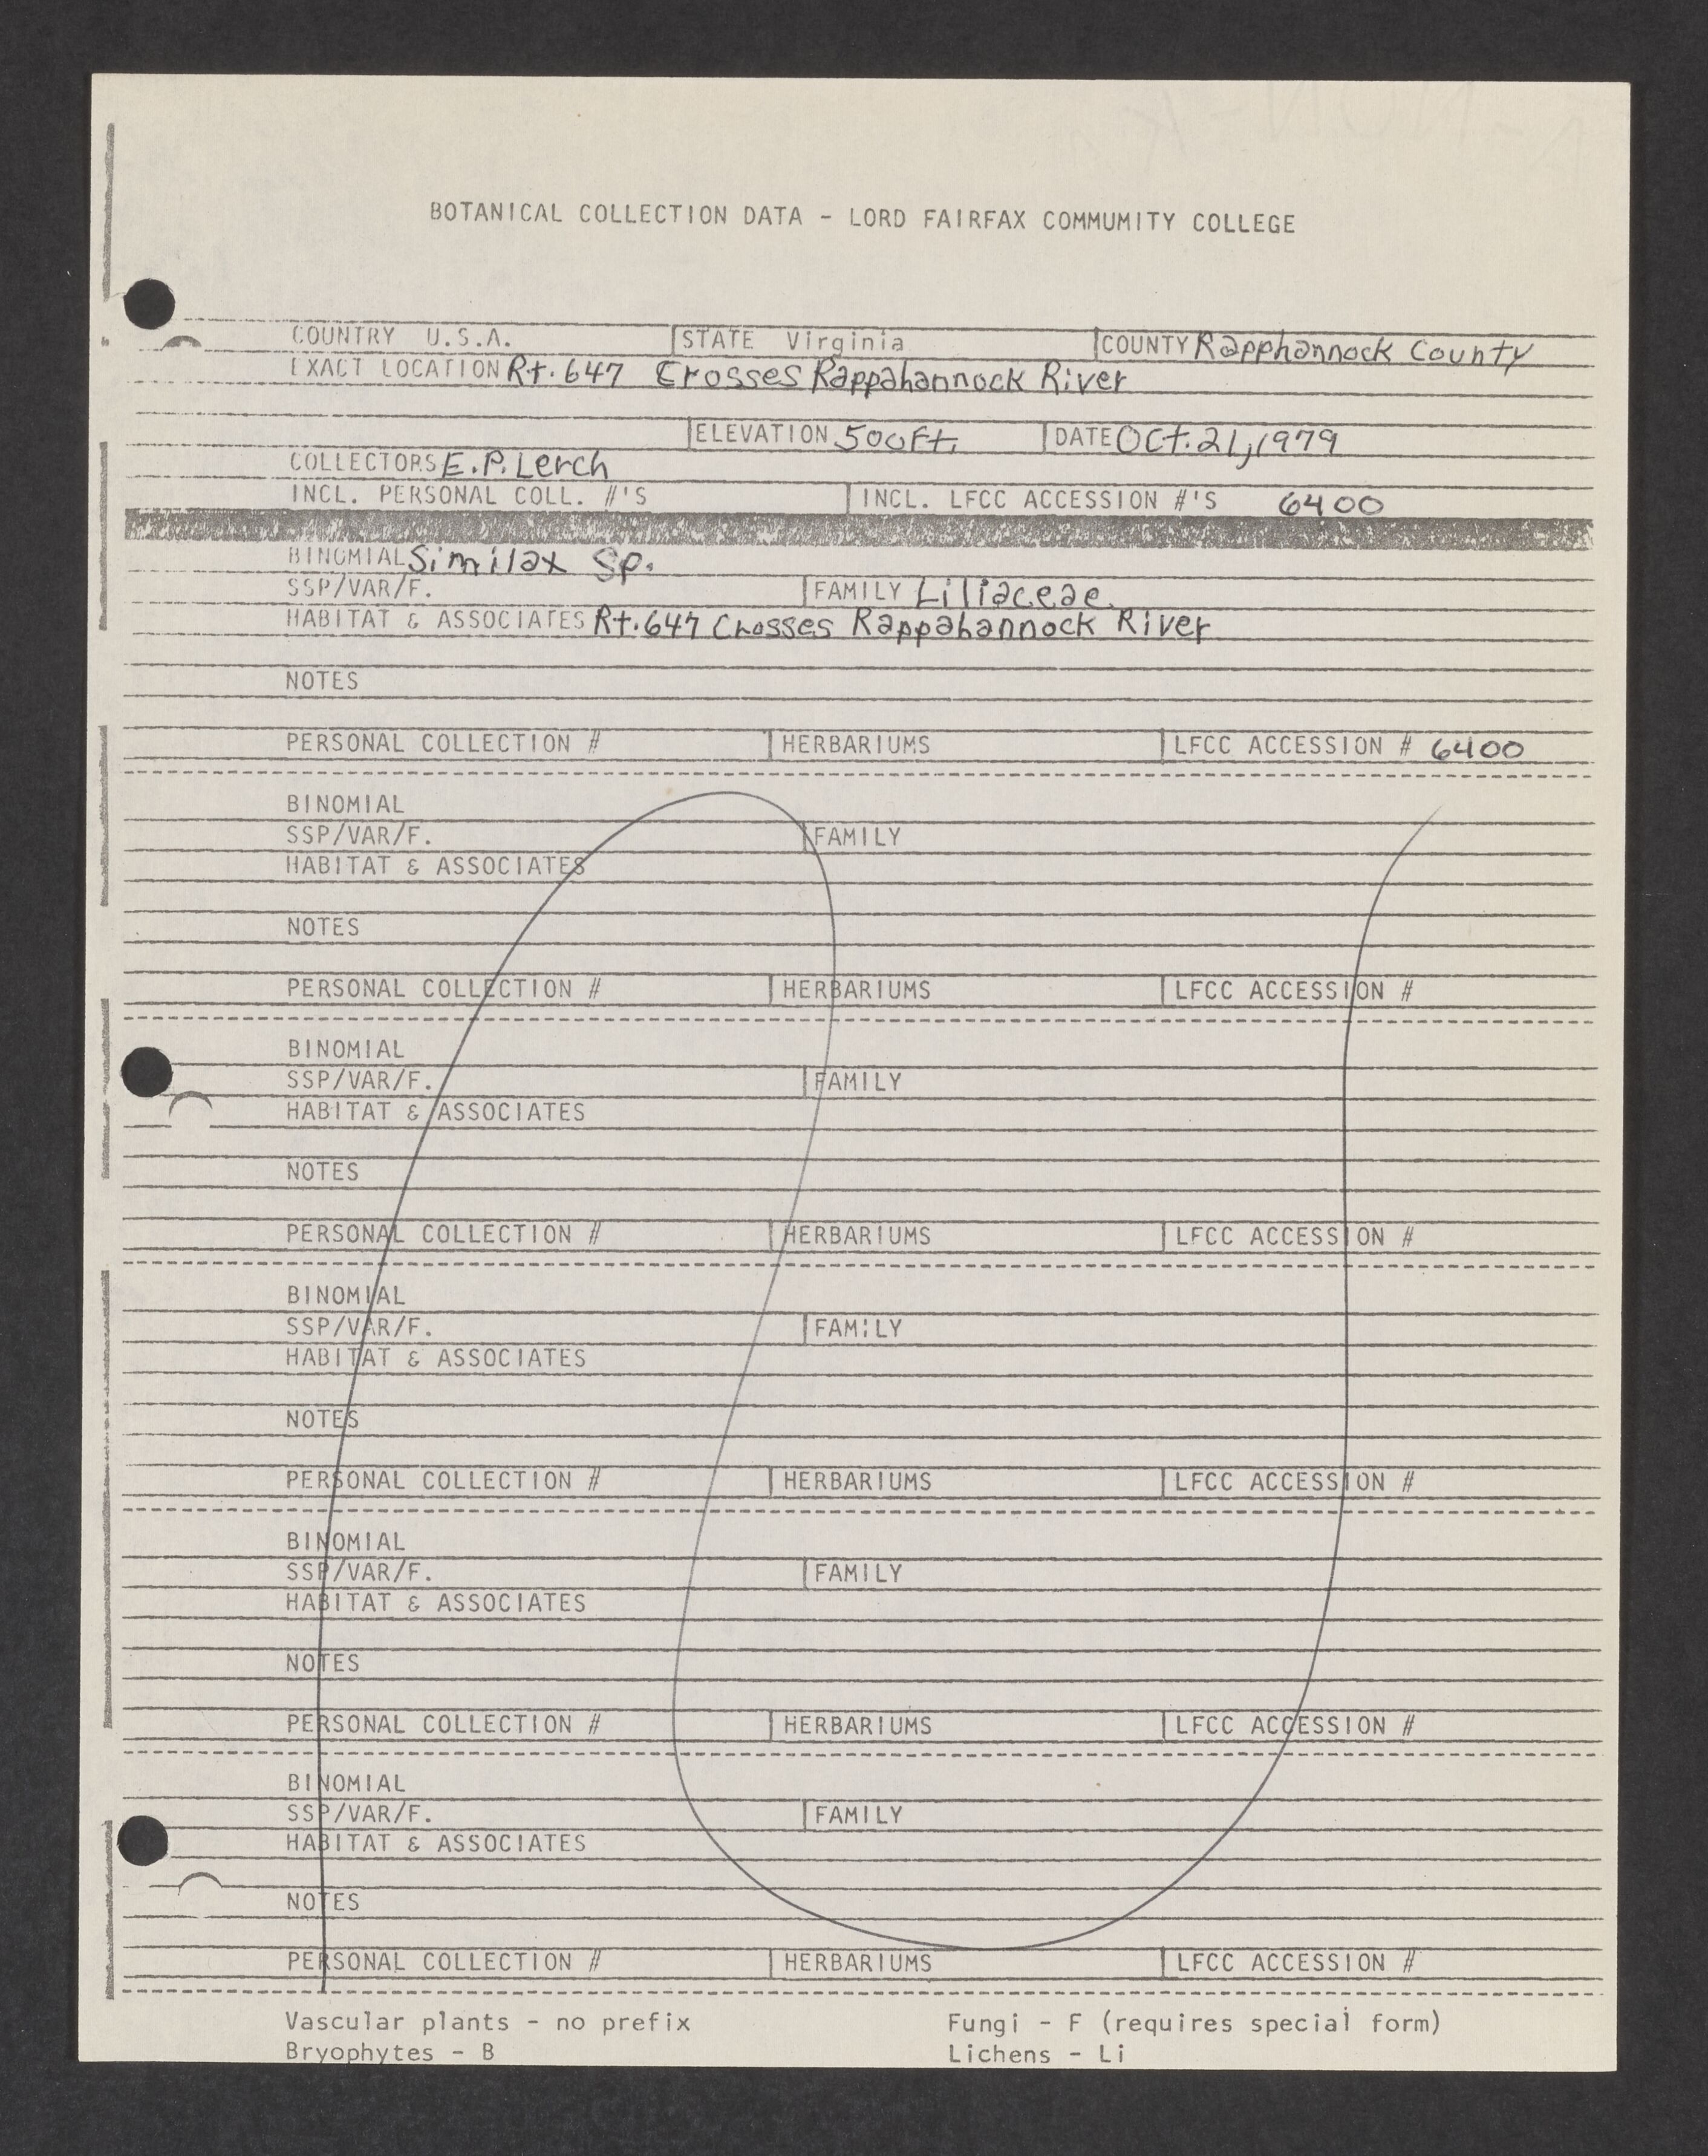 BOTANICAL COLLECTION DATA - LORD FAIRFAX COMMUMITY COLLEGE
COUNTRY U.S.A. STATE Virginia COUNTY Rapphannock County
EXACT LOCATION Rt. 647 Crosses Rappahannock River
ELEVATION 500Ft. DATE Oct. 21, 1979
COLLECTORS E.P. Lerch
INCL. PERSONAL COLL. #'S INCL. LFCC ACCESSION #'S 6400
BINOMIAL Similax Sp.
SSP/VAR/F. FAMILY Liliaceae
HABITAT & ASSOCIATES Rt. 647 Crosses Rappahannock River
NOTES
PERSONAL COLLECTION # HERBARIUMS LFCC ACCESSION # 6400
BINOMIAL
SSP/VAR/F. FAMILY
HABITAT & ASSOCIATES
NOTES
PERSONAL COLLECTION # HERBARIUMS LFCC ACCESSION #
BINOMIAL
SSP/VAR/F. FAMILY
HABITAT & ASSOCIATES
NOTES
PERSONAL COLLECTION # HERBARIUMS LFCC ACCESSION #
BINOMIAL
SSP/VAR/F. FAMILY
HABITAT & ASSOCIATES
NOTES
PERSONAL COLLECTION # HERBARIUMS LFCC ACCESSION #
BINOMIAL
SSP/VAR/F. FAMILY
HABITAT & ASSOCIATES
NOTES
PERSONAL COLLECTION # HERBARIUMS LFCC ACCESSION #
BINOMIAL
SSP/VAR/F. FAMILY
HABITAT & ASSOCIATES
NOTES
PERSONAL COLLECTION # HERBARIUMS LFCC ACCESSION #
Vascular plants - no prefix Fungi - F (requires special form)
Bryophytes - B Lichens - Li